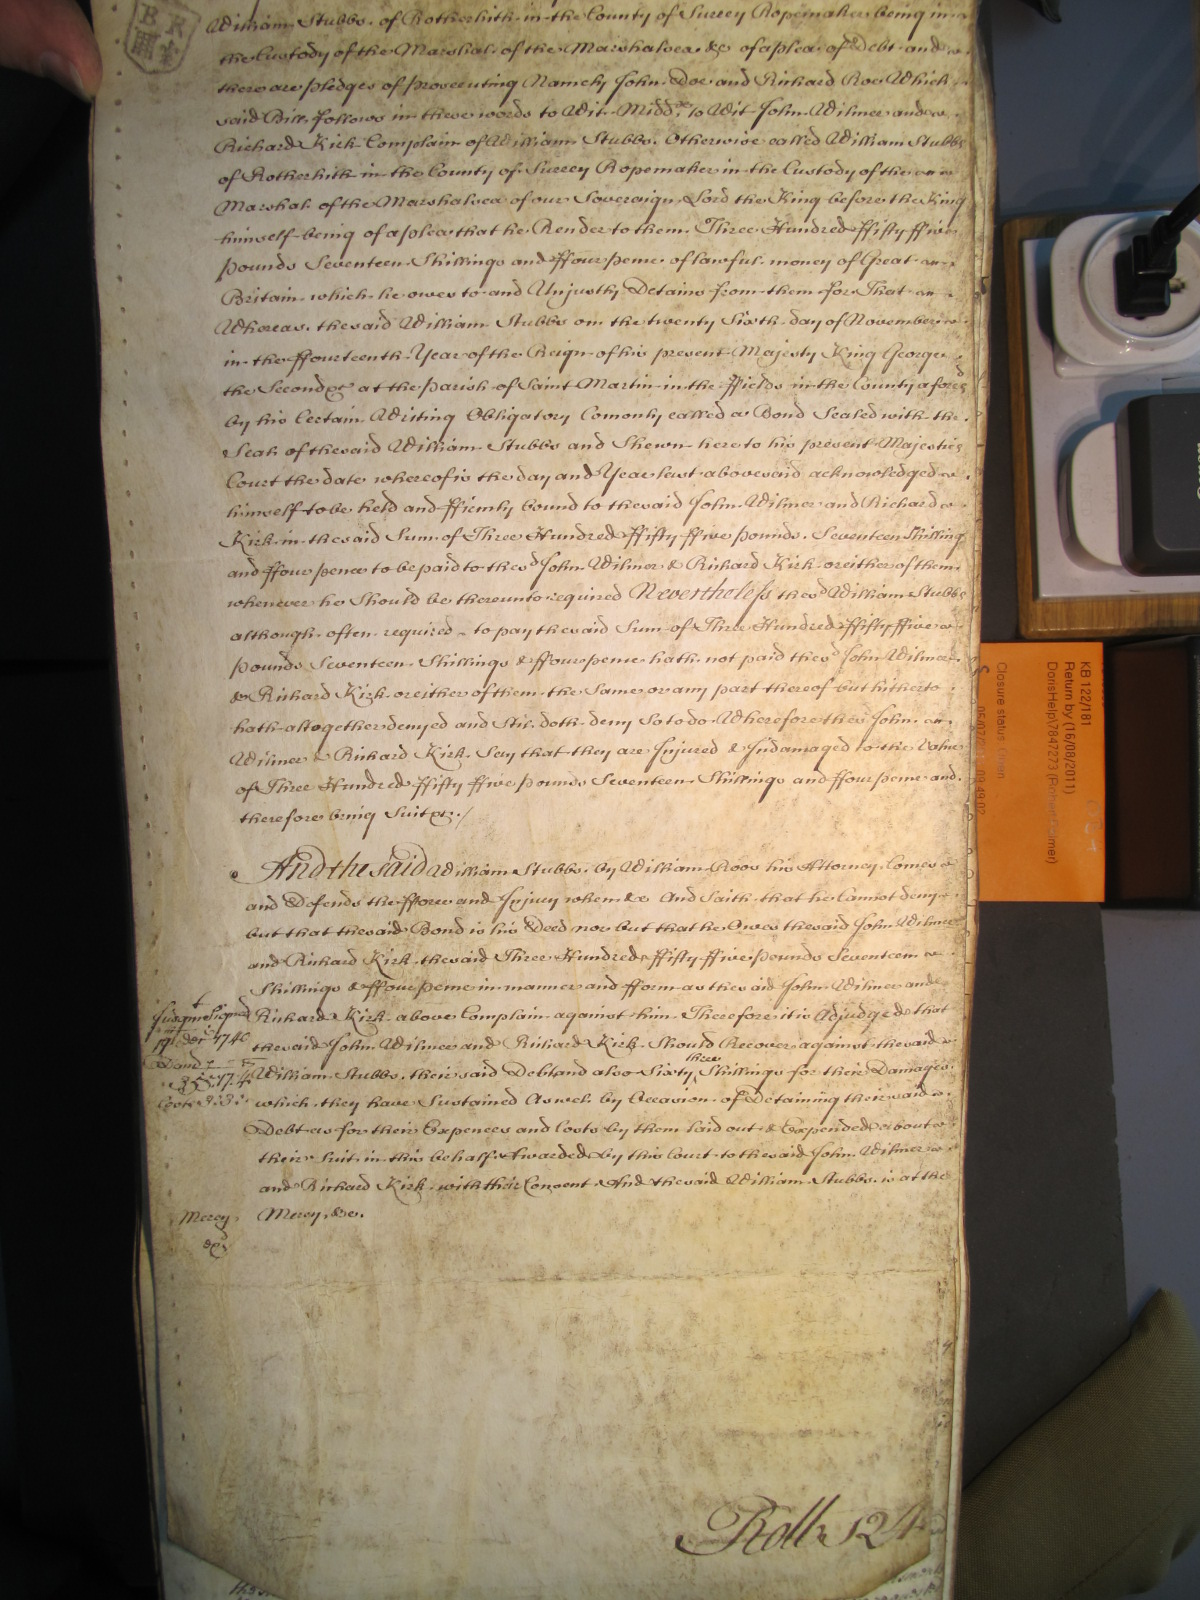 William Stubbs of Rotherhith in the County of Surrey Ropemaker being in
the Custody of the Marshal of the Marshalsea &c of a plea of Debt and
there are pledges of prosecuting Namely John Doe and Richard Roe Which
said Bill follows in these words to Wit Midd̄x to Wit John Wilmer and
Richard Kirk Complain of William Stubbs Otherwise called William Stubbs
of Rotherhith in the County of Surrey Ropemaker in the Custody of the
Marshal of the Marshalsea of our Sovereign Lord the King before the King
himself being of a plea that he Render to them Three Hundred ffifty ffive
pounds Seventeen Shillings and ffour pence of lawful money of Great
Britain which he owes to and Unjustly Detains from them for That
Whereas the said William Stubbs on the twenty Sixth day of November
in the ffourteenth Year of the Reign of his present Majesty King George
the Second &c at the parish of Saint Martin in the ffields in the County afores̄d
by his Certain Writing Obligatory Comonly called a Bond Sealed with the
Seal of the said William Stubbs and Shewn here to his present Majesties
Court the date whereof is the day and Year last abovesaid acknowledged
himself to be held and ffirmly bound to the said John Wilmer and Richard
Kirk in the said Sum of Three Hundred ffifty ffive pounds Seventeen Shillings
and ffour pence to be paid to the sd John Wilmer & Richard Kirk or either of them
whenever he Should be thereunto required Nevertheless the sd William Stubbs
although often required to pay the said Sum of Three Hundred ffifty ffive
pounds Seventeen Shillings & ffour pence hath not paid the sd John Wilmer
& Richard Kirk or either of them the Same or any part thereof but hitherto
hath altogether denyed and Stil doth deny So to do Wherefore the sd John
Wilmer & Richard Kirk Sey that they are Injured & Indamaged to the Value
of Three Hundred ffifty ffive pounds Seventeen Shillings and ffour pence and
therefore bring Suit &c./
And the said William Stubbs by William Roos his Attorney Comes
and Defends the fforce and Injury when &c And Saith that he Cannot deny
but that the said Bond is his Deed nor but that he Owes the said John Wilmer
and Richard Kirk the said Three Hundred ffifty ffive pounds Seventeen
Shillings & ffour pence in manner and fform as the said John Wilmer and
Richard Kirk above Complain against him Therefore it is Adjudged that
the said John Wilmer and Richard Kirk Should Recover against the said
William Stubbs their said Debt and also Sixty three Shillings for their Damages
which they have Sustained Aswel by Occasion of Detaining their said
Debt as for their Expences and Costs by them laid out & Expended about
their Suit in this behalf Awarded by this Court to the said John Wilmer
and Richard Kirk with their Consent And the said William Stubbs is at the
Mercy, &c.
1740
355. 17. 4
Costs 3. 3.
Mercy
Roll 124
KB 122/181
Return by (16/08/2011)
Closure status: Open
B R